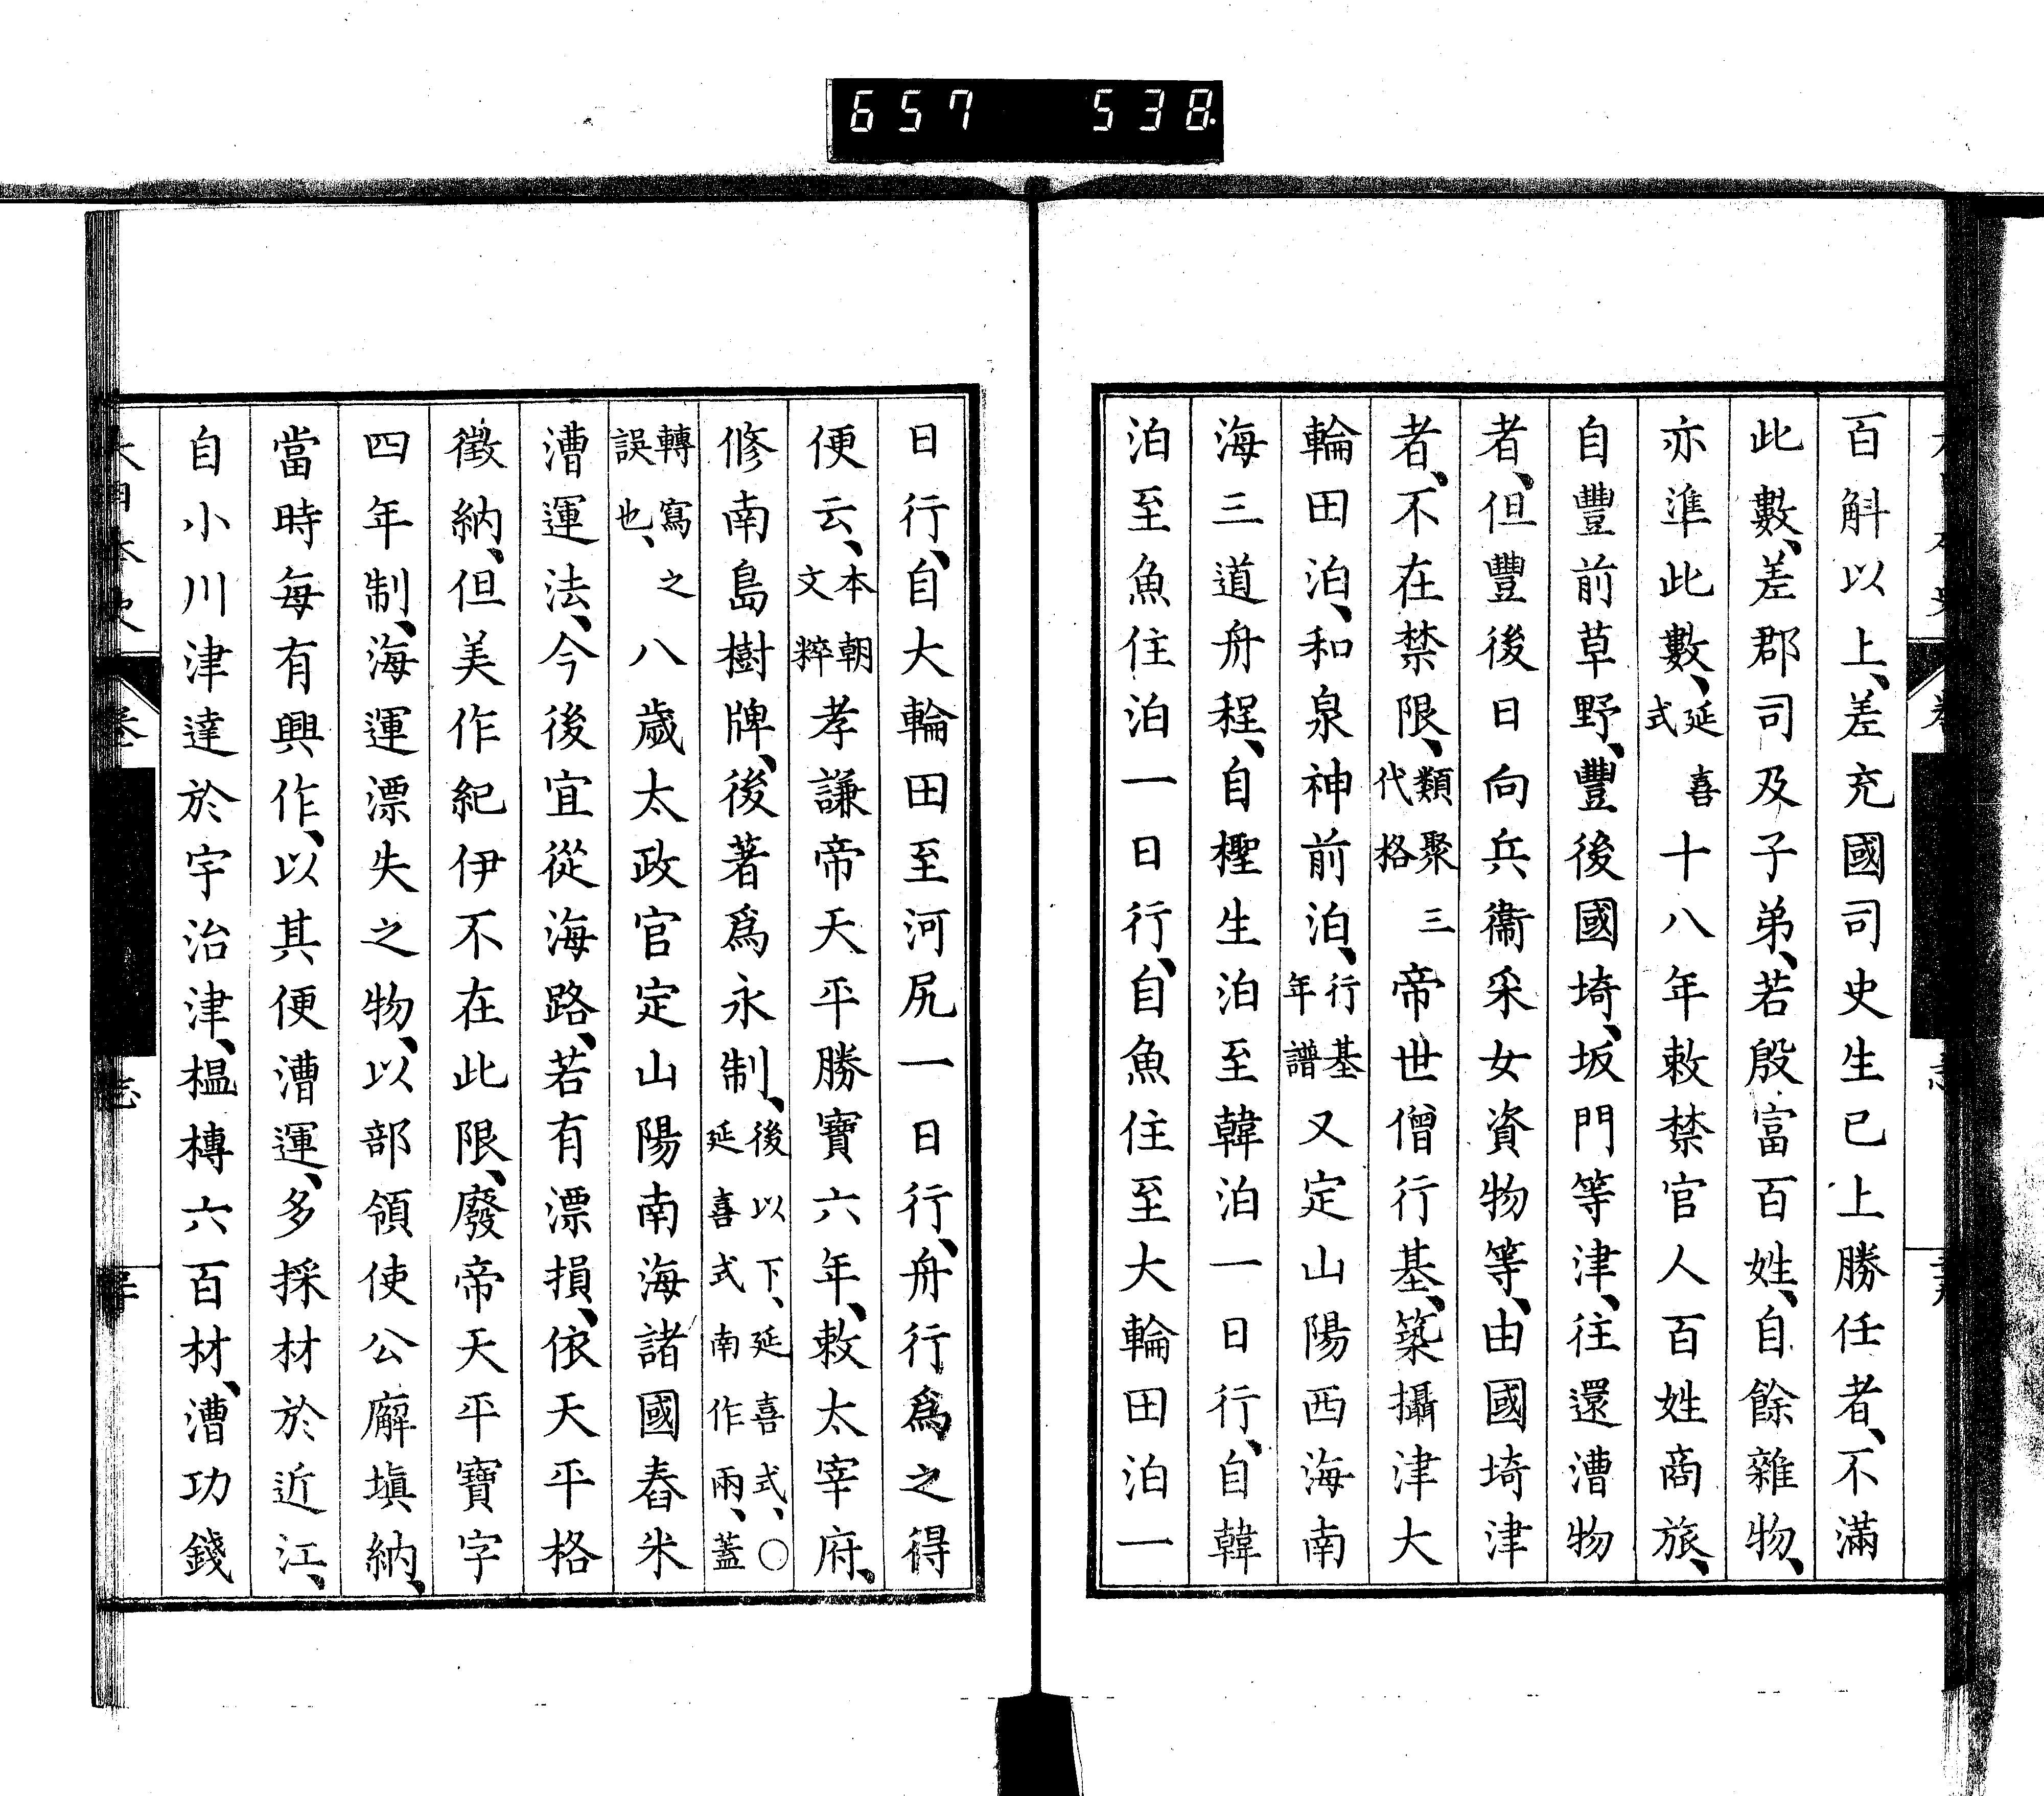 657 538
百斛以上、差充國司史生已上勝任者、不滿
此數、差郡司及子弟、若殷富百姓、自餘雜物、
亦準此數、延喜式十八年敕禁官人百姓商旅、
自豐前草野、豐後國埼、坂門等津、往還漕物
者、但豐後日向兵衞采女資物等、由國埼津
者、不在禁限、類聚三代格帝世僧行基、築攝津大
輪田泊、和泉神前泊、行基年譜又定山陽西海南
海三道舟程、自檉生泊至韓泊一日行、自韓
泊至魚住泊一日行、自魚住至大輪田泊一
日行、自大輪田至河尻一日行、舟行爲之得
便云、本朝文粹孝謙帝天平勝寶六年、敕太宰府、
修南島樹牌、後著爲永制、後以下、延喜式、〇延喜式南作兩、蓋
轉寫之誤也、八歲太政官定山陽南海諸國舂米
漕運法、今後宜從海路、若有漂損、依天平格
徵納、但美作紀伊不在此限、廢帝天平寶字
四年制、海運漂失之物、以部領使公廨塡納、
當時每有興作、以其便漕運、多採材於近江、
自小川津達於宇治津、榲榑六百材、漕功錢